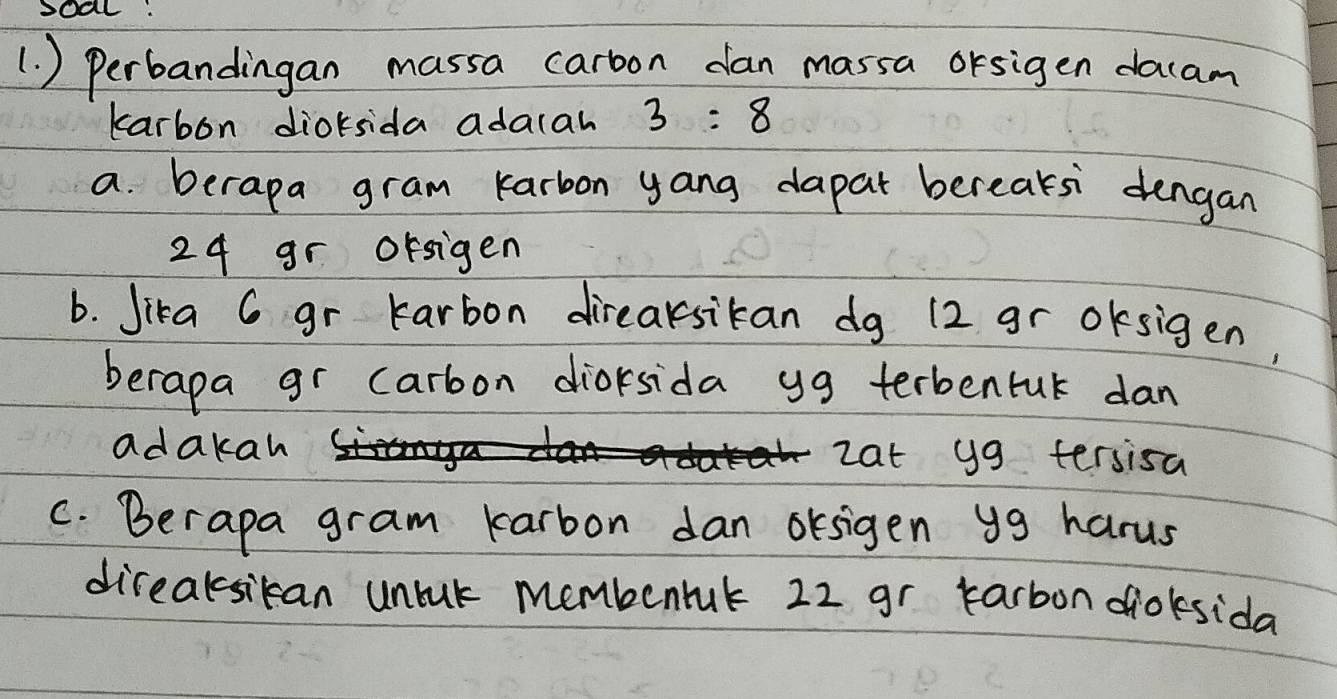 soal :
1.) Perbandingan massa carbon dan massa oksigen dalam
karbon dioksida adalah 3 : 8
a. berapa gram karbon yang dapat bereaksi dengan
24 gr oksigen
b. Jika 6 gr karbon direaksikan dg 12 gr oksigen,
berapa gr carbon dioksida yg terbentuk dan
adakah zat yg tersisa
c. Berapa gram karbon dan oksigen yg harus
direaksikan untuk membentuk 22 gr karbon dioksida